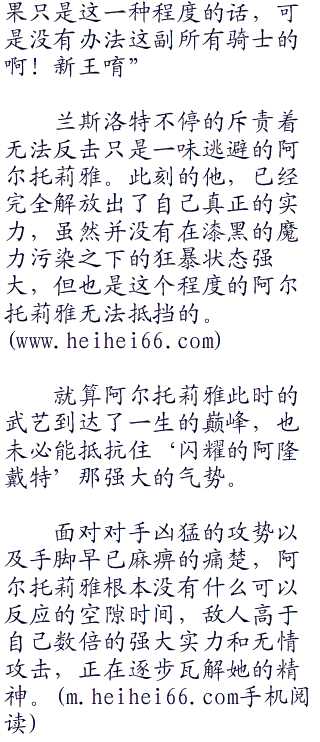 果只是这一种程度的话，可
是没有办法这副所有骑士的
啊！新王唷”
兰斯洛特不停的斥责着
无法反击只是一味逃避的阿
尔托莉雅。此刻的他，已经
完全解放出了自己真正的实
力，虽然并没有在漆黑的魔
力污染之下的狂暴状态强
大，但也是这个程度的阿尔
托莉雅无法抵挡的。
(www.heihei66.com)
就算阿尔托莉雅此时的
武艺到达了一生的巅峰，也
未必能抵抗住‘闪耀的阿隆
戴特’那强大的气势。
面对对手凶猛的攻势以
及手脚早已麻痹的痛楚，阿
尔托莉雅根本没有什么可以
反应的空隙时间，敌人高于
自己数倍的强大实力和无情
攻击，正在逐步瓦解她的精
神。(m.heihei66.com手机阅
读)